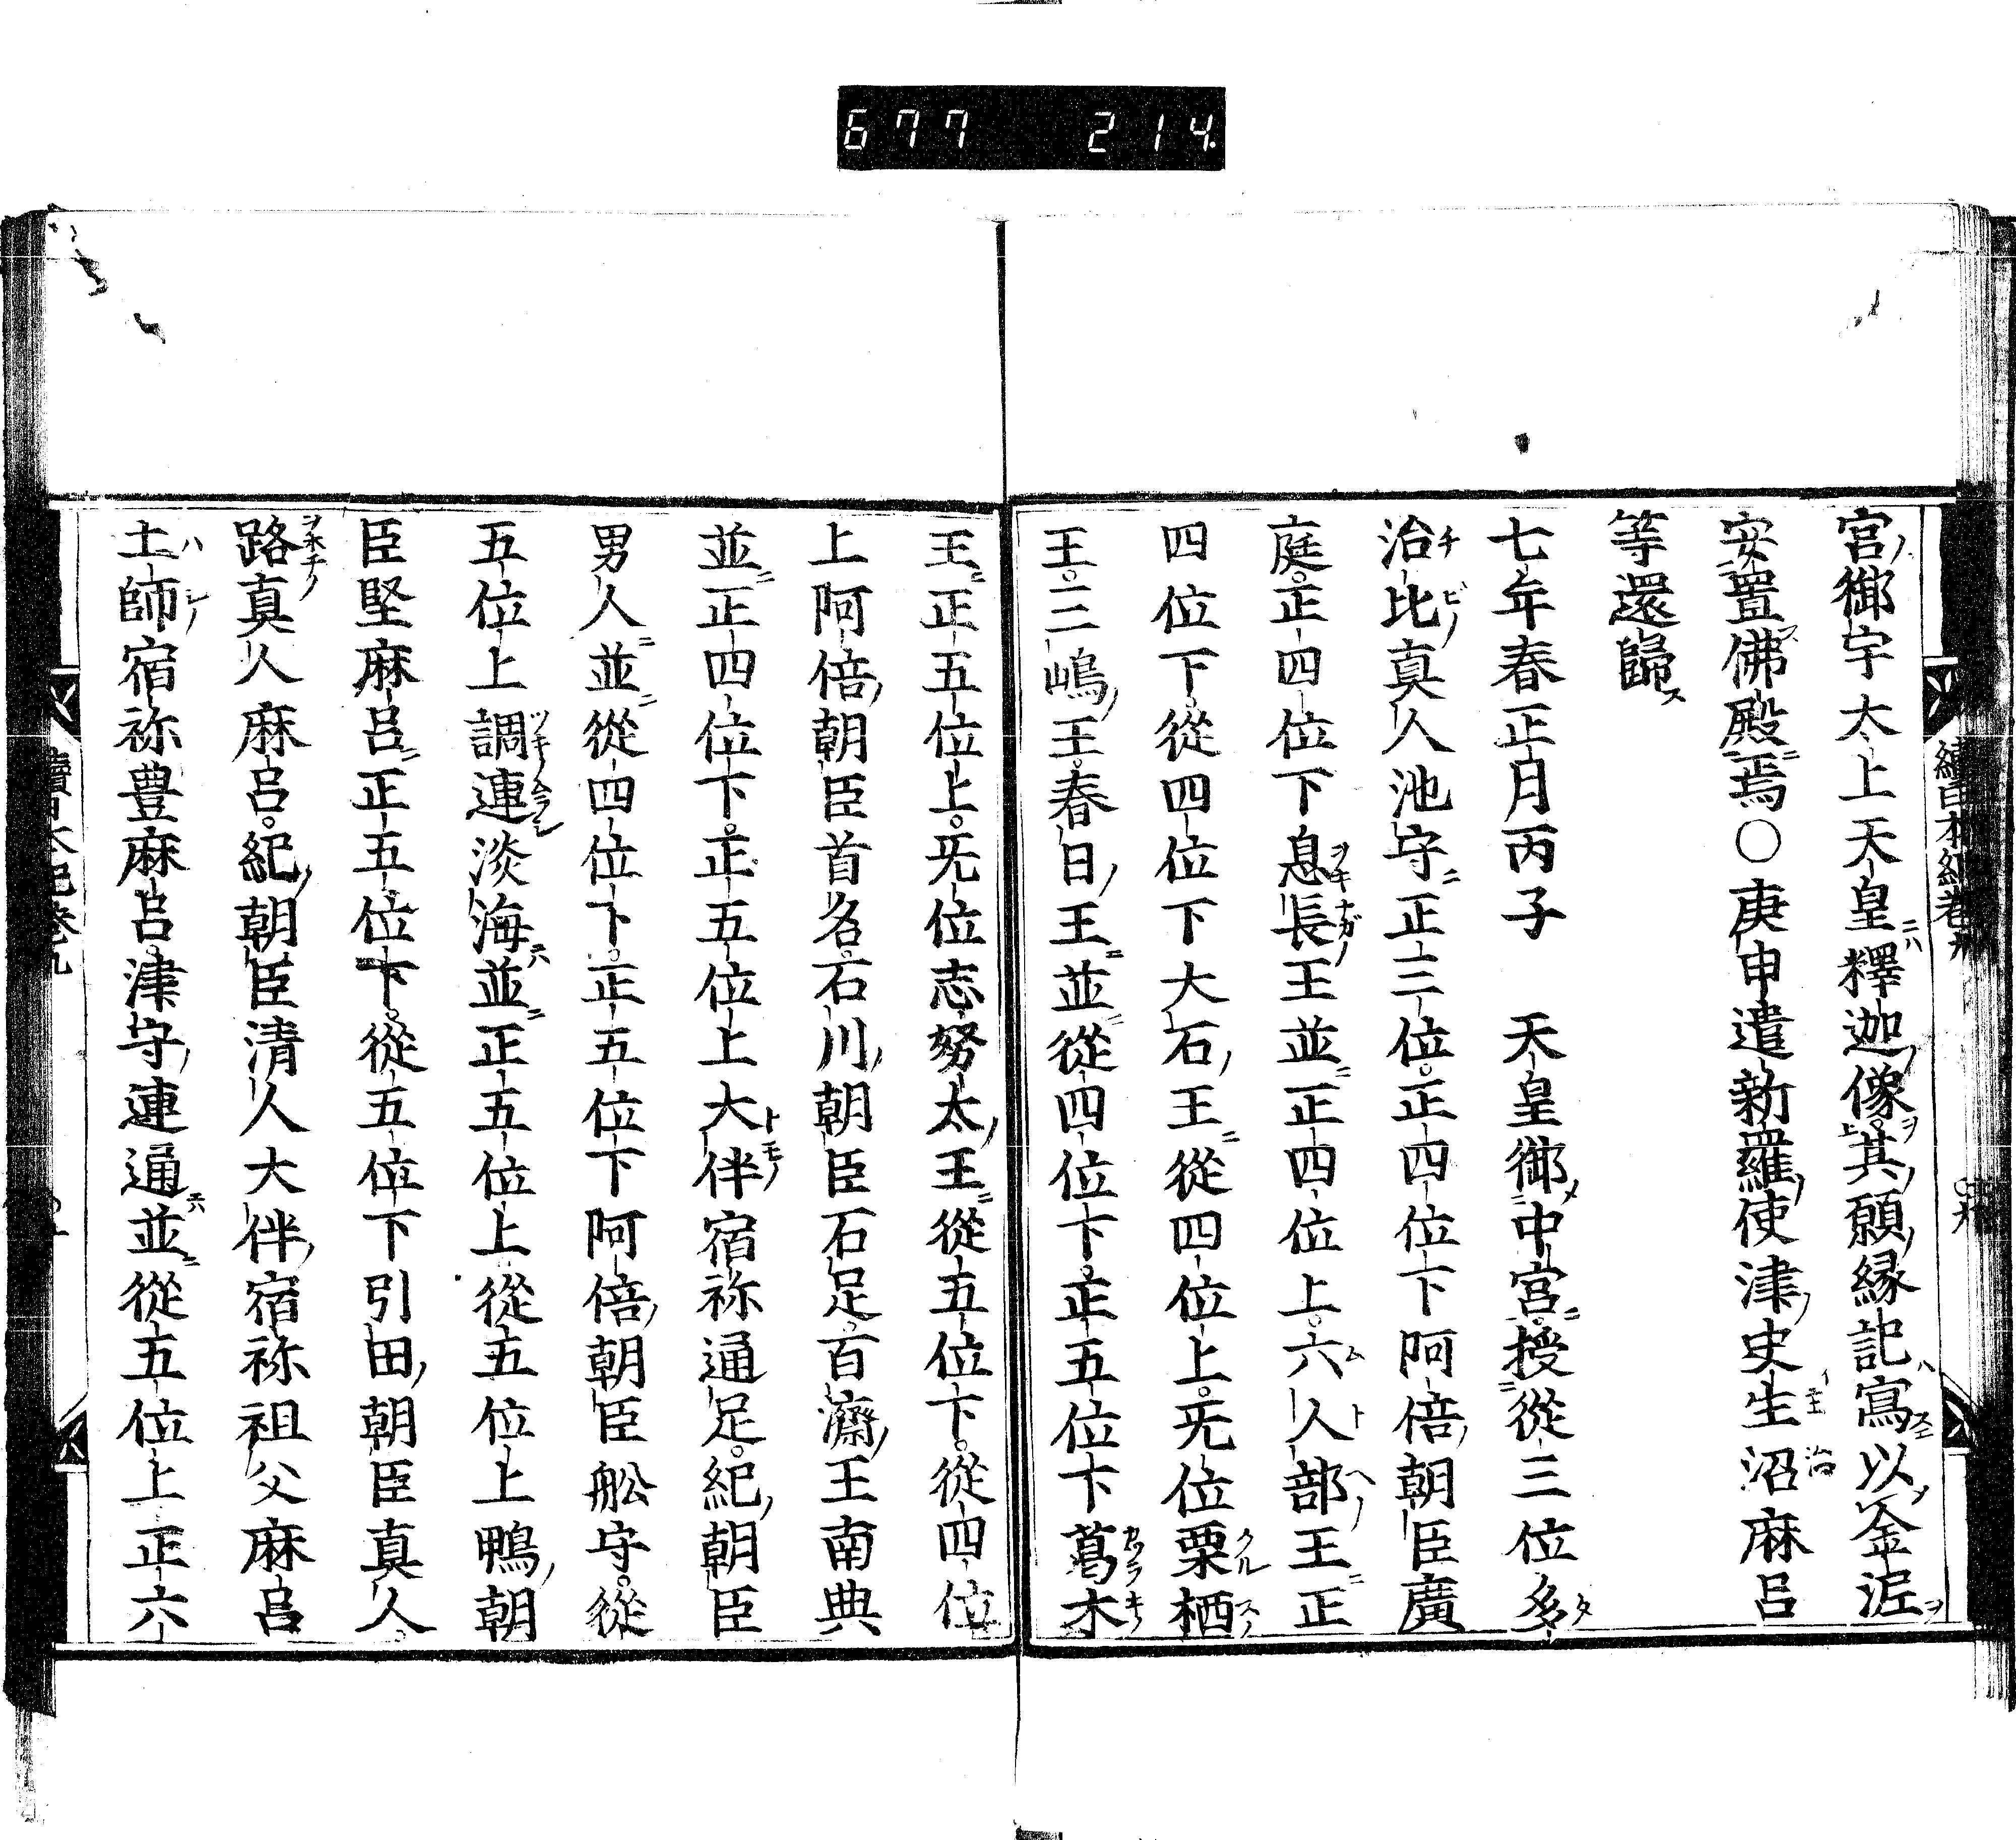 677 214
宮御宇太上天皇釋迦像其願縁記寫以金泥
安置佛殿焉○庚申遣新羅使津史生沼麻呂
等還歸
七年春正月丙子 天皇御中宮授從三位多
治比真人池守正三位正四位下阿倍朝臣廣
庭正四位下息長王並正四位上六人部王正
四位下從四位下大石王從四位上无位栗栖
王三嶋王春日王並從四位下正五位下葛木
王正五位上无位志努太王從五位下從四位
上阿倍朝臣首名石川朝臣石足百濟王南典
並正四位下正五位上大伴宿祢通足紀朝臣
男人並從四位下正五位下阿倍朝臣舩守從
五位上調連淡海並正五位上從五位上鴨朝
臣堅麻呂正五位下從五位下引田朝臣真人
路真人麻呂紀朝臣清人大伴宿祢祖父麻呂
土師宿祢豊麻呂津守連通並從五位上正六